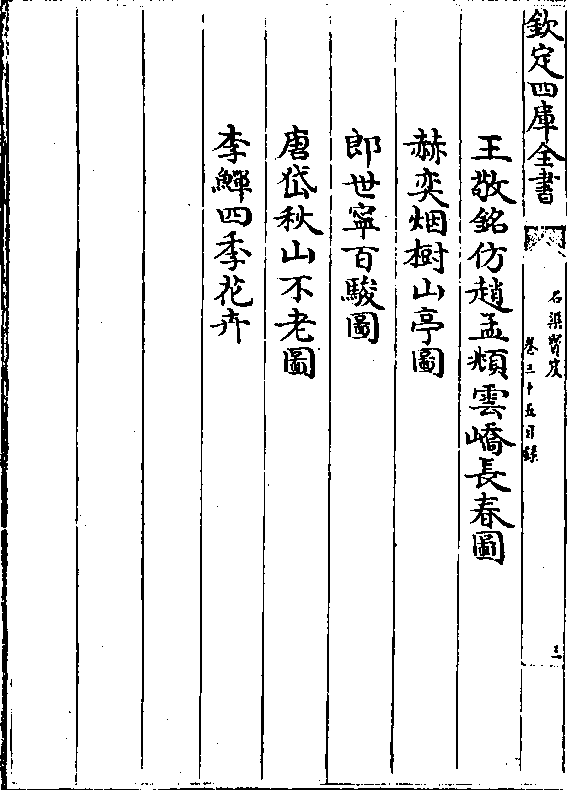 欽定四庫全書
石渠寶笈
卷三十五目錄
三
王敬銘仿趙孟頫雲嶠長春圖
赫奕烟樹山亭圖
郎世寧百駿圖
唐岱秋山不老圖
李鱓四季花卉